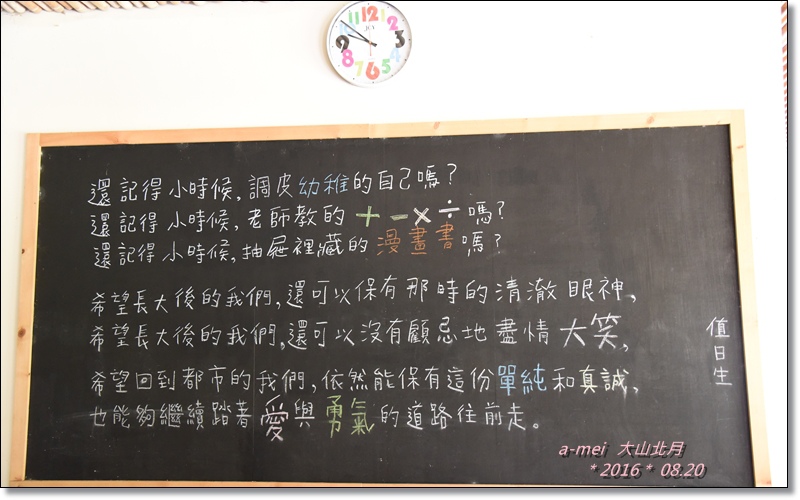 12
11
1
10
2
9
JOY
3
8
4
7
6
5
還記得小時候,調皮幼稚的自己嗎?
還記得小時候,老師教的+-×÷嗎?
還記得小時候,抽屜裡藏的漫畫書嗎?
希望長大後的我們,還可以保有那時的清澈眼神、
希望長大後的我們,還可以沒有顧忌地盡情大笑、
希望回到都市的我們,依然能保有這份單純和真誠、
也能夠繼續踏著愛與勇氣的道路往前走。
值日生
a-mei 大山北月
*2016* 08.20